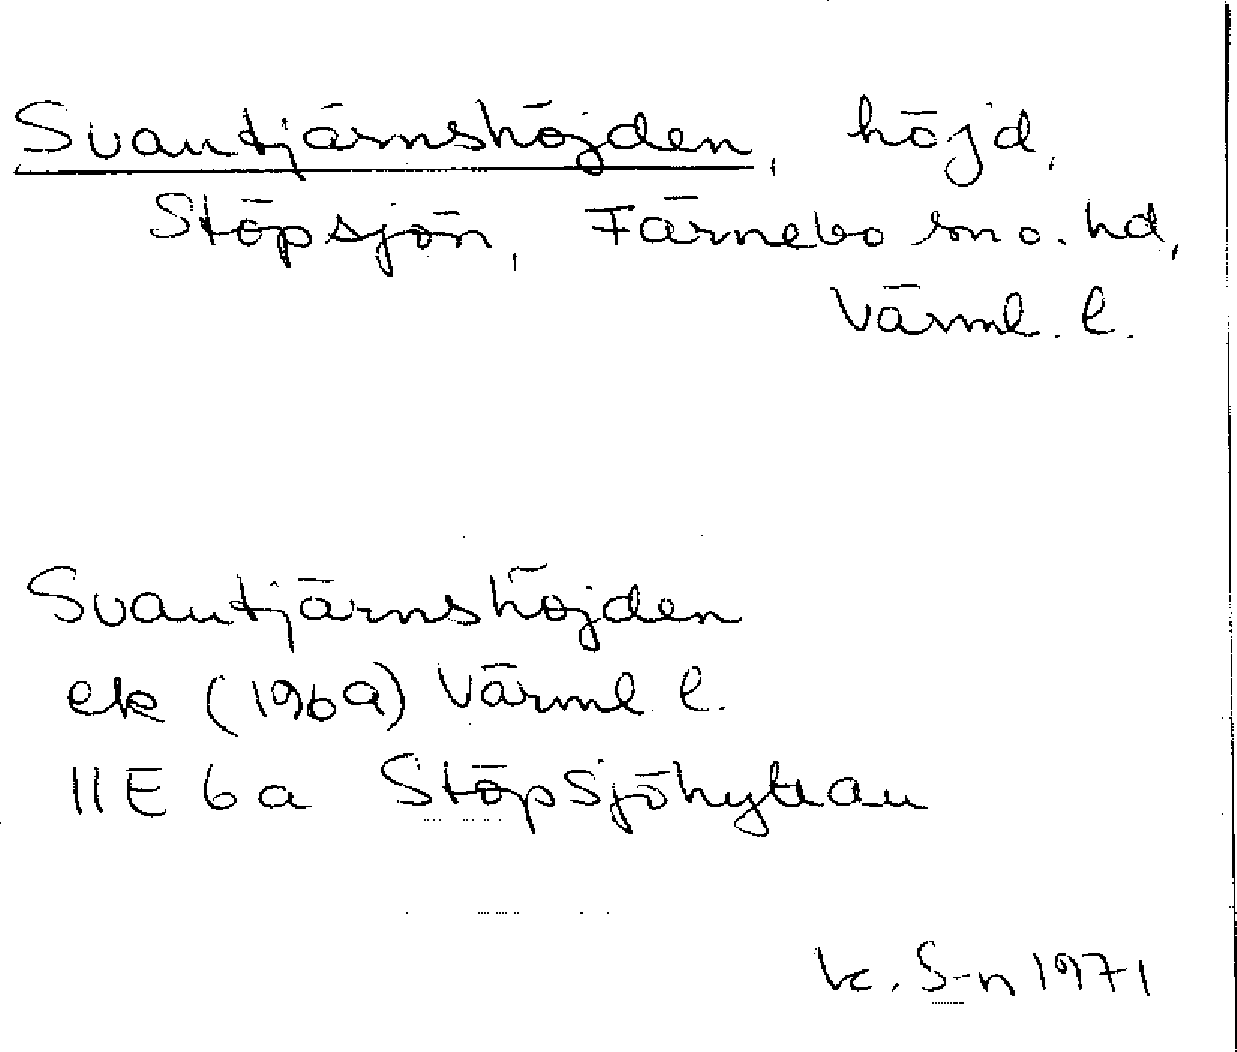 Svantjärnshöjden, höjd,
Stöpsjön, Färnebo sn o. hd,
Värml. l.
Svantjärnshöjden
ek (1969) Värml. l.
11E 6a Stöpsjöhyttan
k. S-n 1971